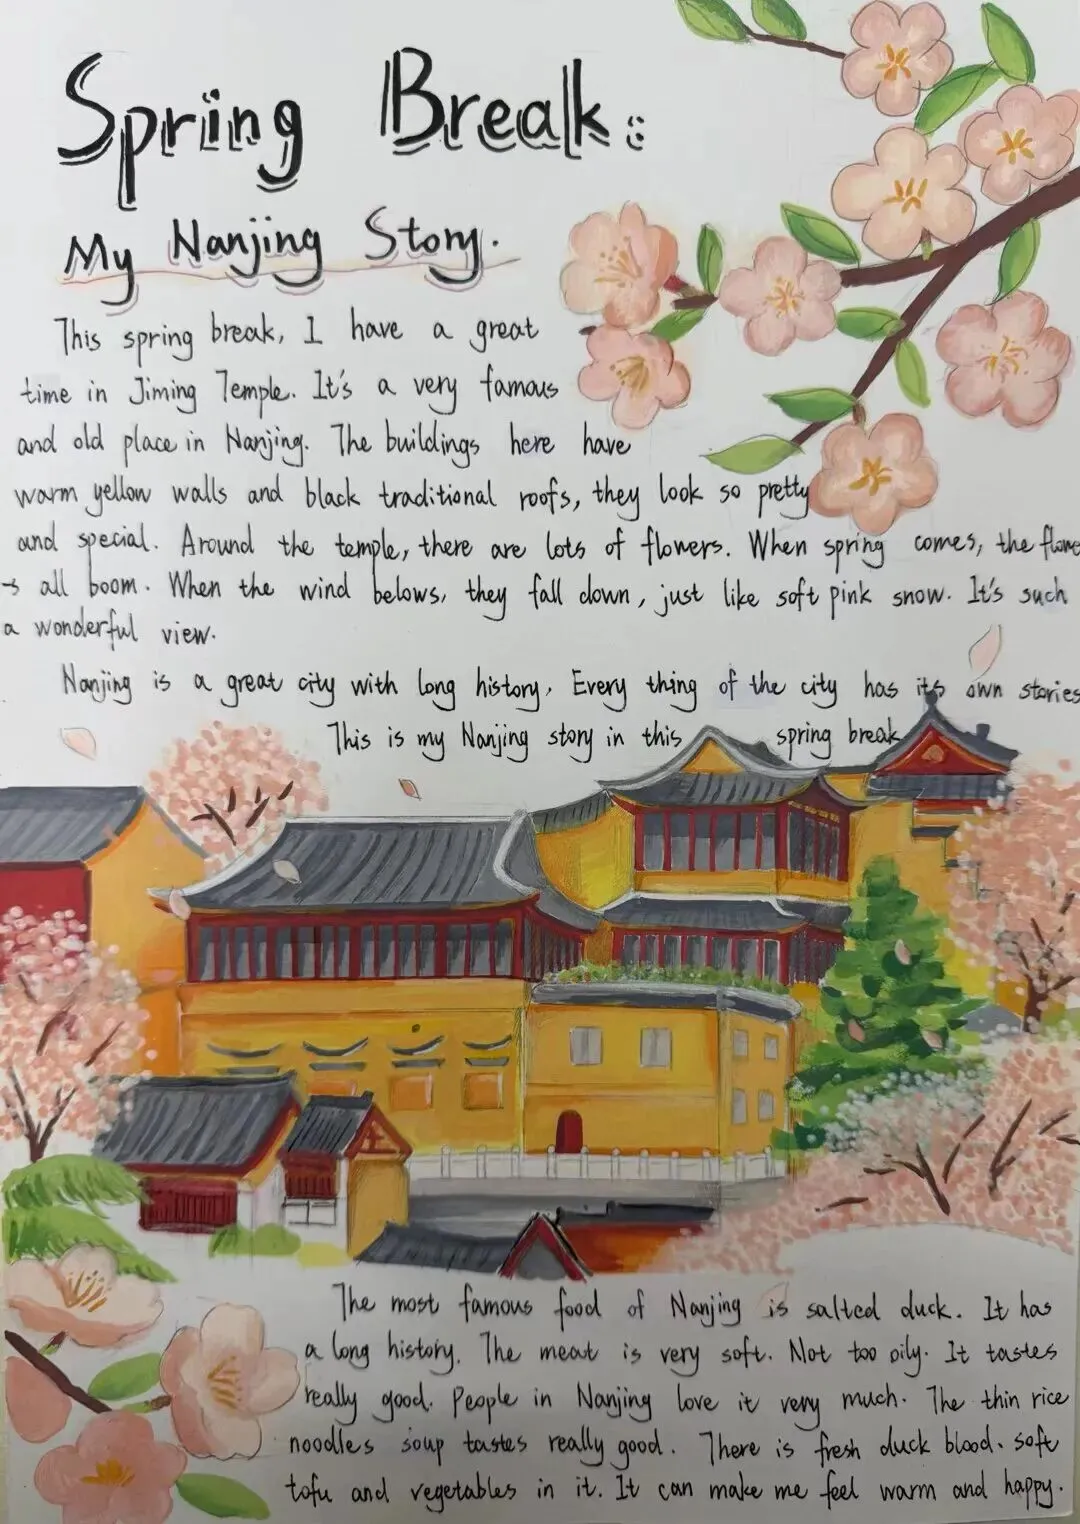 Spring Break:
My Nanjing Story.
This spring break, I have a great
time in Jiming Temple. It's a very famous
and old place in Nanjing. The buildings here have
warm yellow walls and black traditional roofs, they look so pretty
and special. Around the temple, there are lots of flowers. When spring comes, the flowe
-s all boom. When the wind belows, they fall down, just like soft pink snow. It's such
a wonderful view.
Nanjing is a great city with long history, Every thing of the city has its own stories
This is my Nanjing story in this spring break
The most famous food of Nanjing is salted duck. It has
a long history. The meat is very soft. Not too oily. It tastes
really good. People in Nanjing love it very much. The thin rice
noodles soup tastes really good. There is fresh duck blood、soft
tofu and vegetables in it. It can make me feel warm and happy.